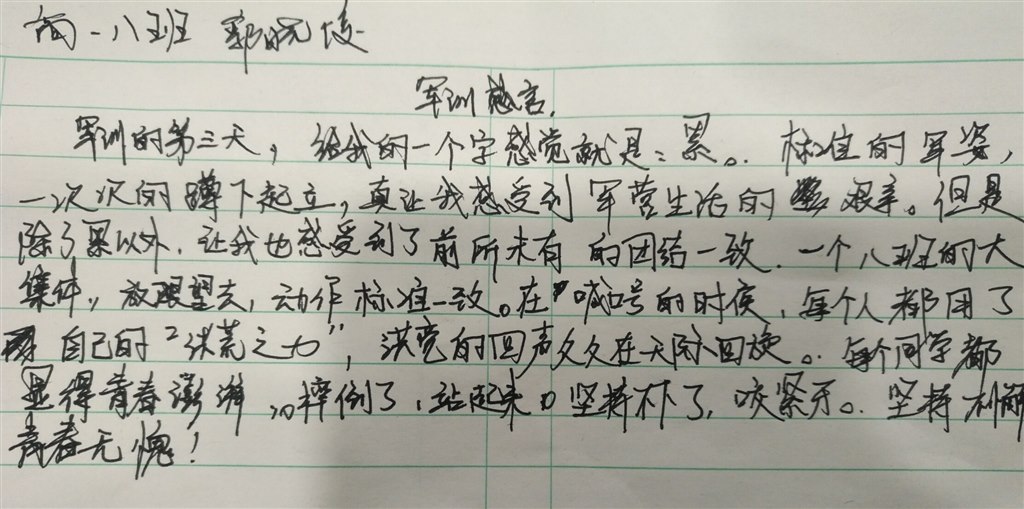 高一八班 郭晓俊
军训感言.
军训的第三天，给我的一个字感觉就是：累。标准的军姿，
一次次的蹲下起立，真让我感受到军营生活的艰辛。但是
除了累以外，让我也感受到了前所未有的团结一致。一个八班的大
集体，放眼望去，动作标准一致。在喊口号的时侯，每个人都用了
自己的“洪荒之力”，洪亮的回声久久在天际回旋。每个同学都
显得青春澎湃，摔倒了，站起来，坚持不了，咬紧牙。坚持
青春无愧！